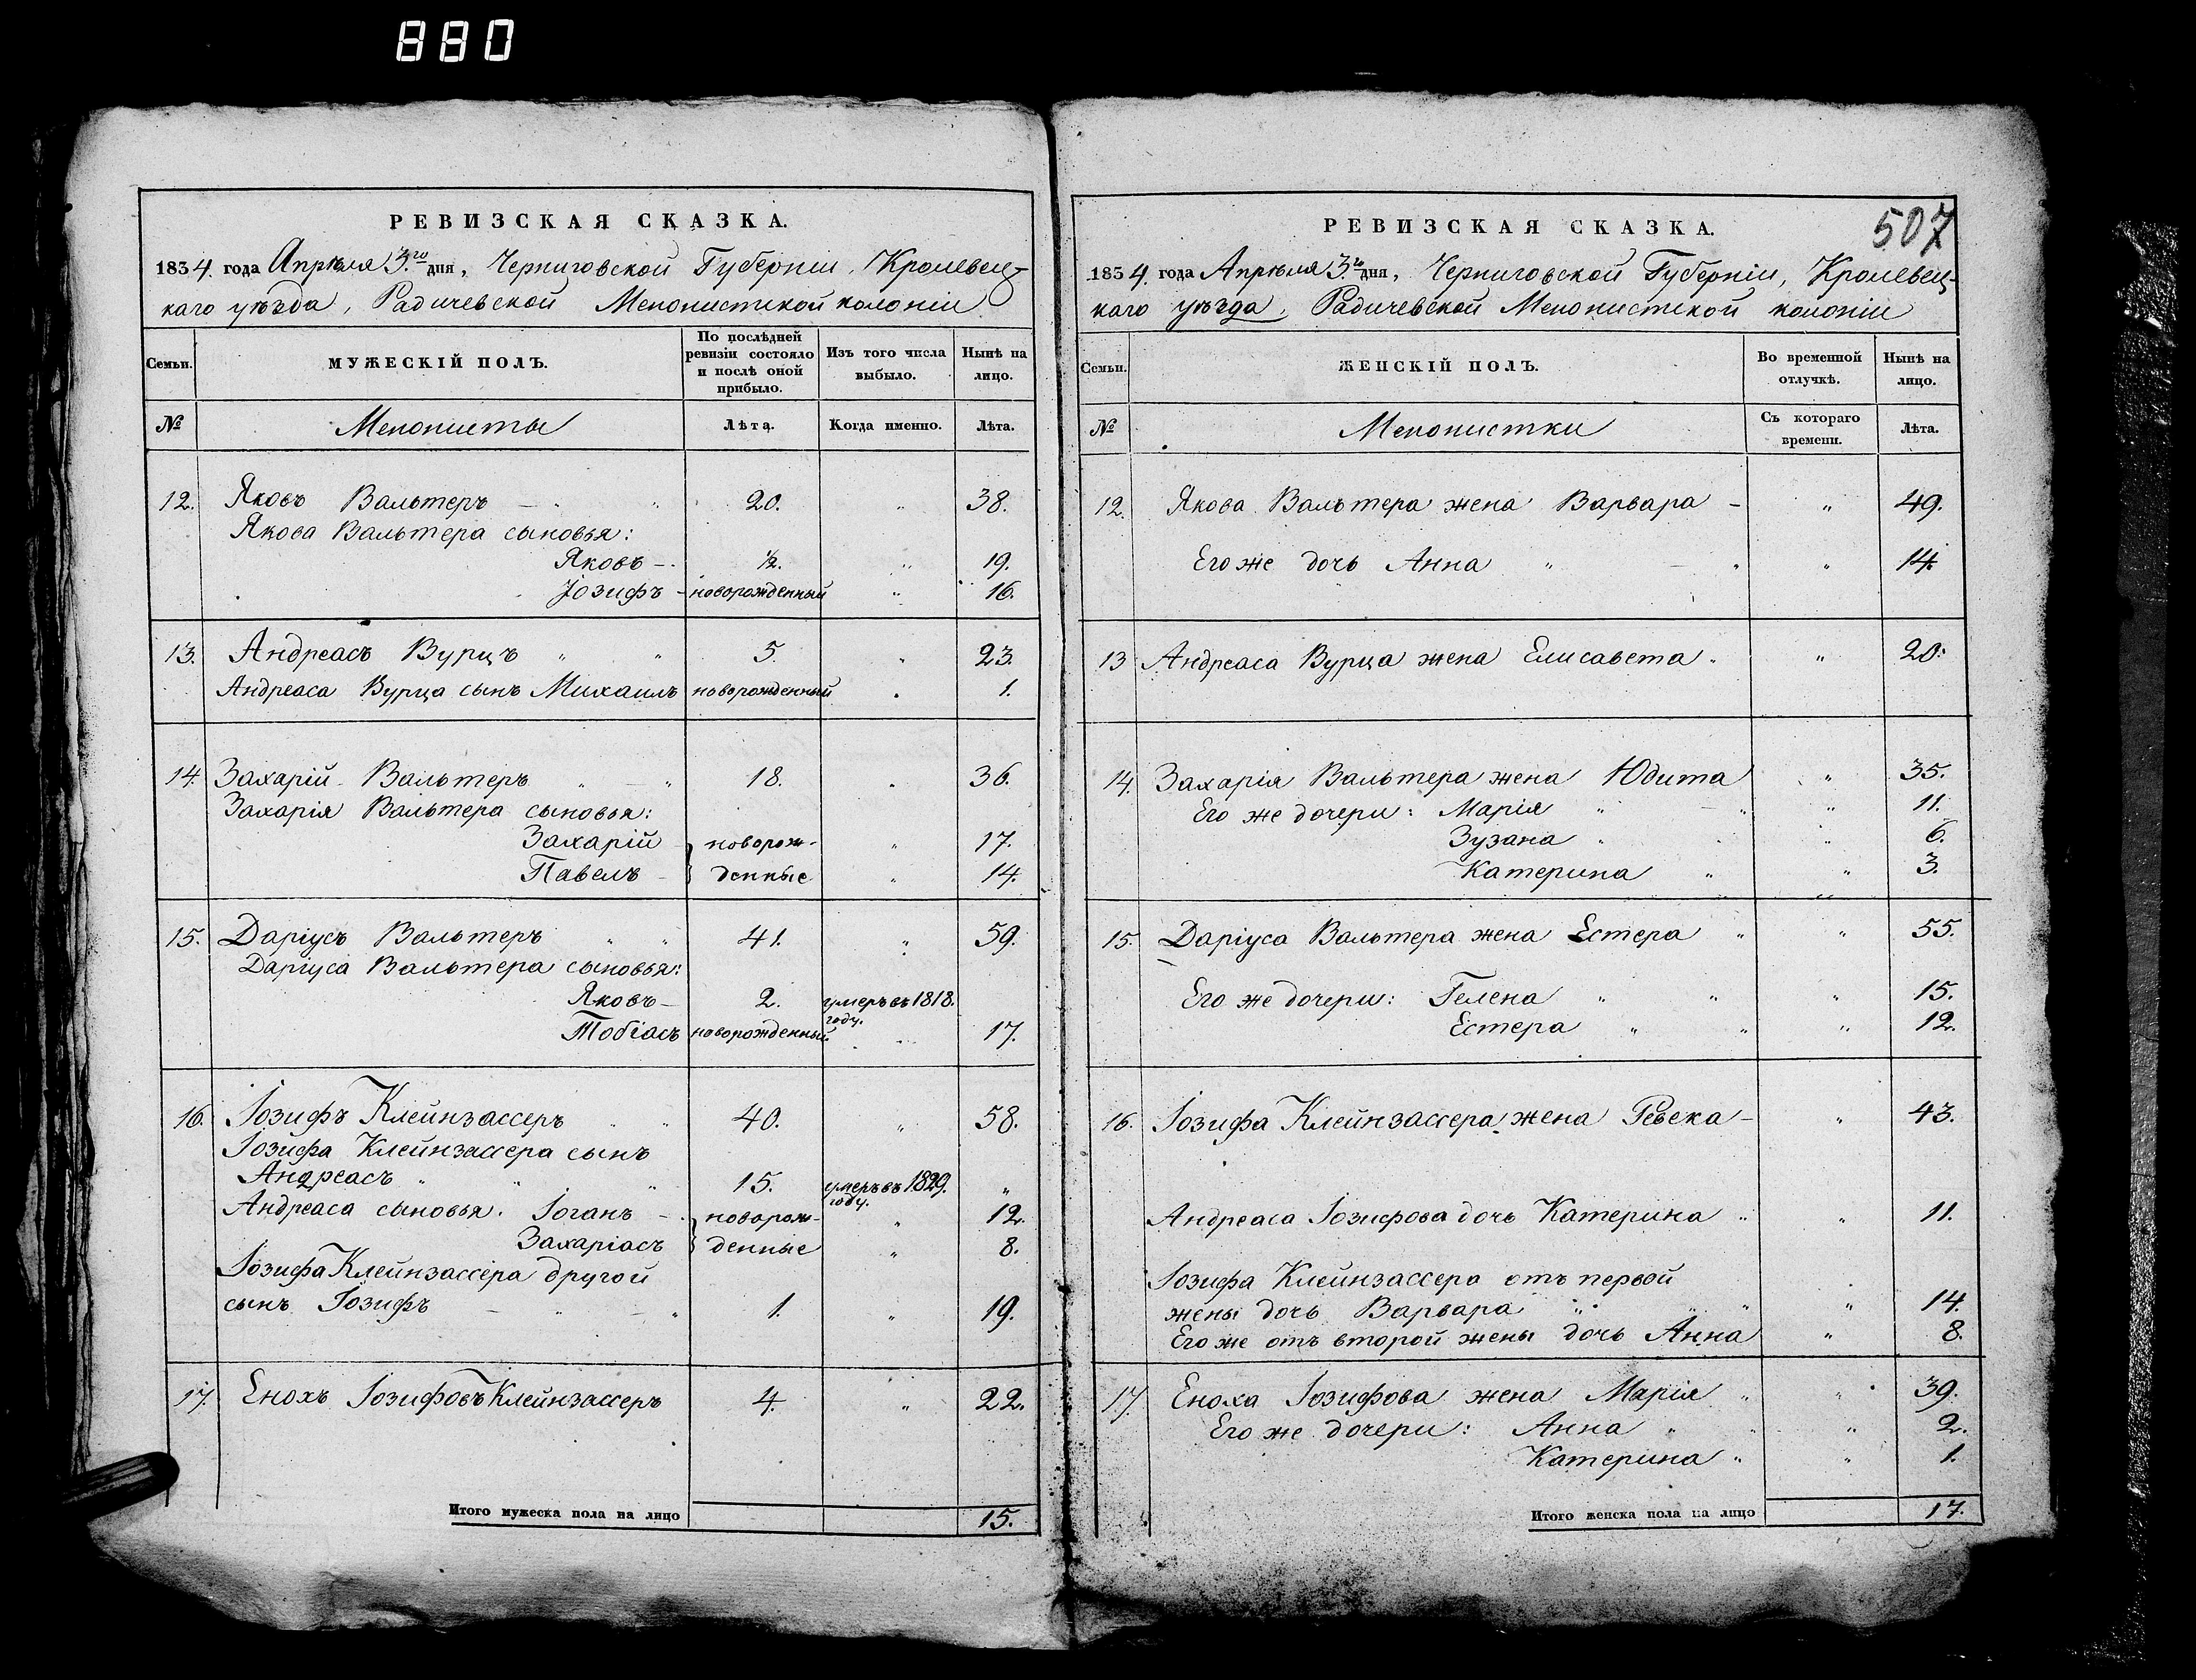 880
РЕВИЗСКАЯ СКАЗКА.
1834. года Апрѣля 3.го дня, Черниговской Губерніи, Кролевец-
каго уѣзда, Радичевской Менонисткой колоніи
Семьи.
МУЖЕСКІЙ ПОЛЪ.
По послѣдней ревизіи состояло и послѣ оной прибыло.
Изъ того числа выбыло.
Нынѣ на лицо.
№
Менонисты
Лѣта.
Когда именно.
Лѣта.
12. Яковъ Вальтеръ 20. " 38.
Якова Вальтера сыновья:
Яковъ - 1/2. " 19.
Іозифъ - новорожденный " 16.
13. Андреасъ Вурцъ " " 5. " 23.
Андреаса Вурца сынъ Михаилъ новорожденный " 1.
14. Захарій Вальтеръ " " 18. " 36.
Захарія Вальтера сыновья:
Захарій новорож- " 17.
Павелъ - денные " 14.
15. Даріусъ Вальтеръ " " 41. " 59.
Даріуса Вальтера сыновья:
Яковъ - 2. умеръ въ 1818.
году.
Тобіасъ новорожденный " 17.
16. Іозифъ Клейнзассеръ " " 40. " 58.
Іозифа Клейнзассера сынъ
Андреасъ " " " 15. умеръ въ 1829. "
году.
Андреаса сыновья: Іоганъ - новорож- " 12.
Захаріасъ денные " 8.
Іозифа Клейнзассера другой
сынъ Іозифъ - " - " 1. " 19.
17. Енохъ Іозифовъ Клейнзассеръ 4. " 22.
Итого мужеска пола на лицо 15.
507
РЕВИЗСКАЯ СКАЗКА.
1834. года Апрѣля 3.го дня, Черниговской Губерніи, Кролевец-
каго уѣзда, Радичевской Менонисткой колоніи
Семьи.
ЖЕНСКІЙ ПОЛЪ.
Во временной отлучкѣ.
Нынѣ на лицо.
№
Менонистки
Съ котораго времени.
Лѣта.
12. Якова Вальтера жена Варвара - " 49.
Его же дочь Анна " - " " 14.
13 Андреаса Вурца жена Елисавета " " 20.
14. Захарія Вальтера жена Юдита " 35.
Его же дочери: Марія " - " " 11.
Зузана " " 6.
Катерина " " 3.
15. Даріуса Вальтера жена Естера " " 55.
Его же дочери: Гелена " " " 15.
Естера " " " 12.
16. Іозифа Клейнзассера жена Ревека - " 43.
Андреаса Іозифова дочь Катерина " " 11.
Іозифа Клейнзассера отъ первой
жены дочь Варвара " " " " 14.
Его же отъ второй жены дочь Анна " 8.
17. Еноха Іозифова жена Марія " " 39.
Его же дочери: Анна " " " 2.
Катерина " " 1.
Итого женска пола на лицо 17.